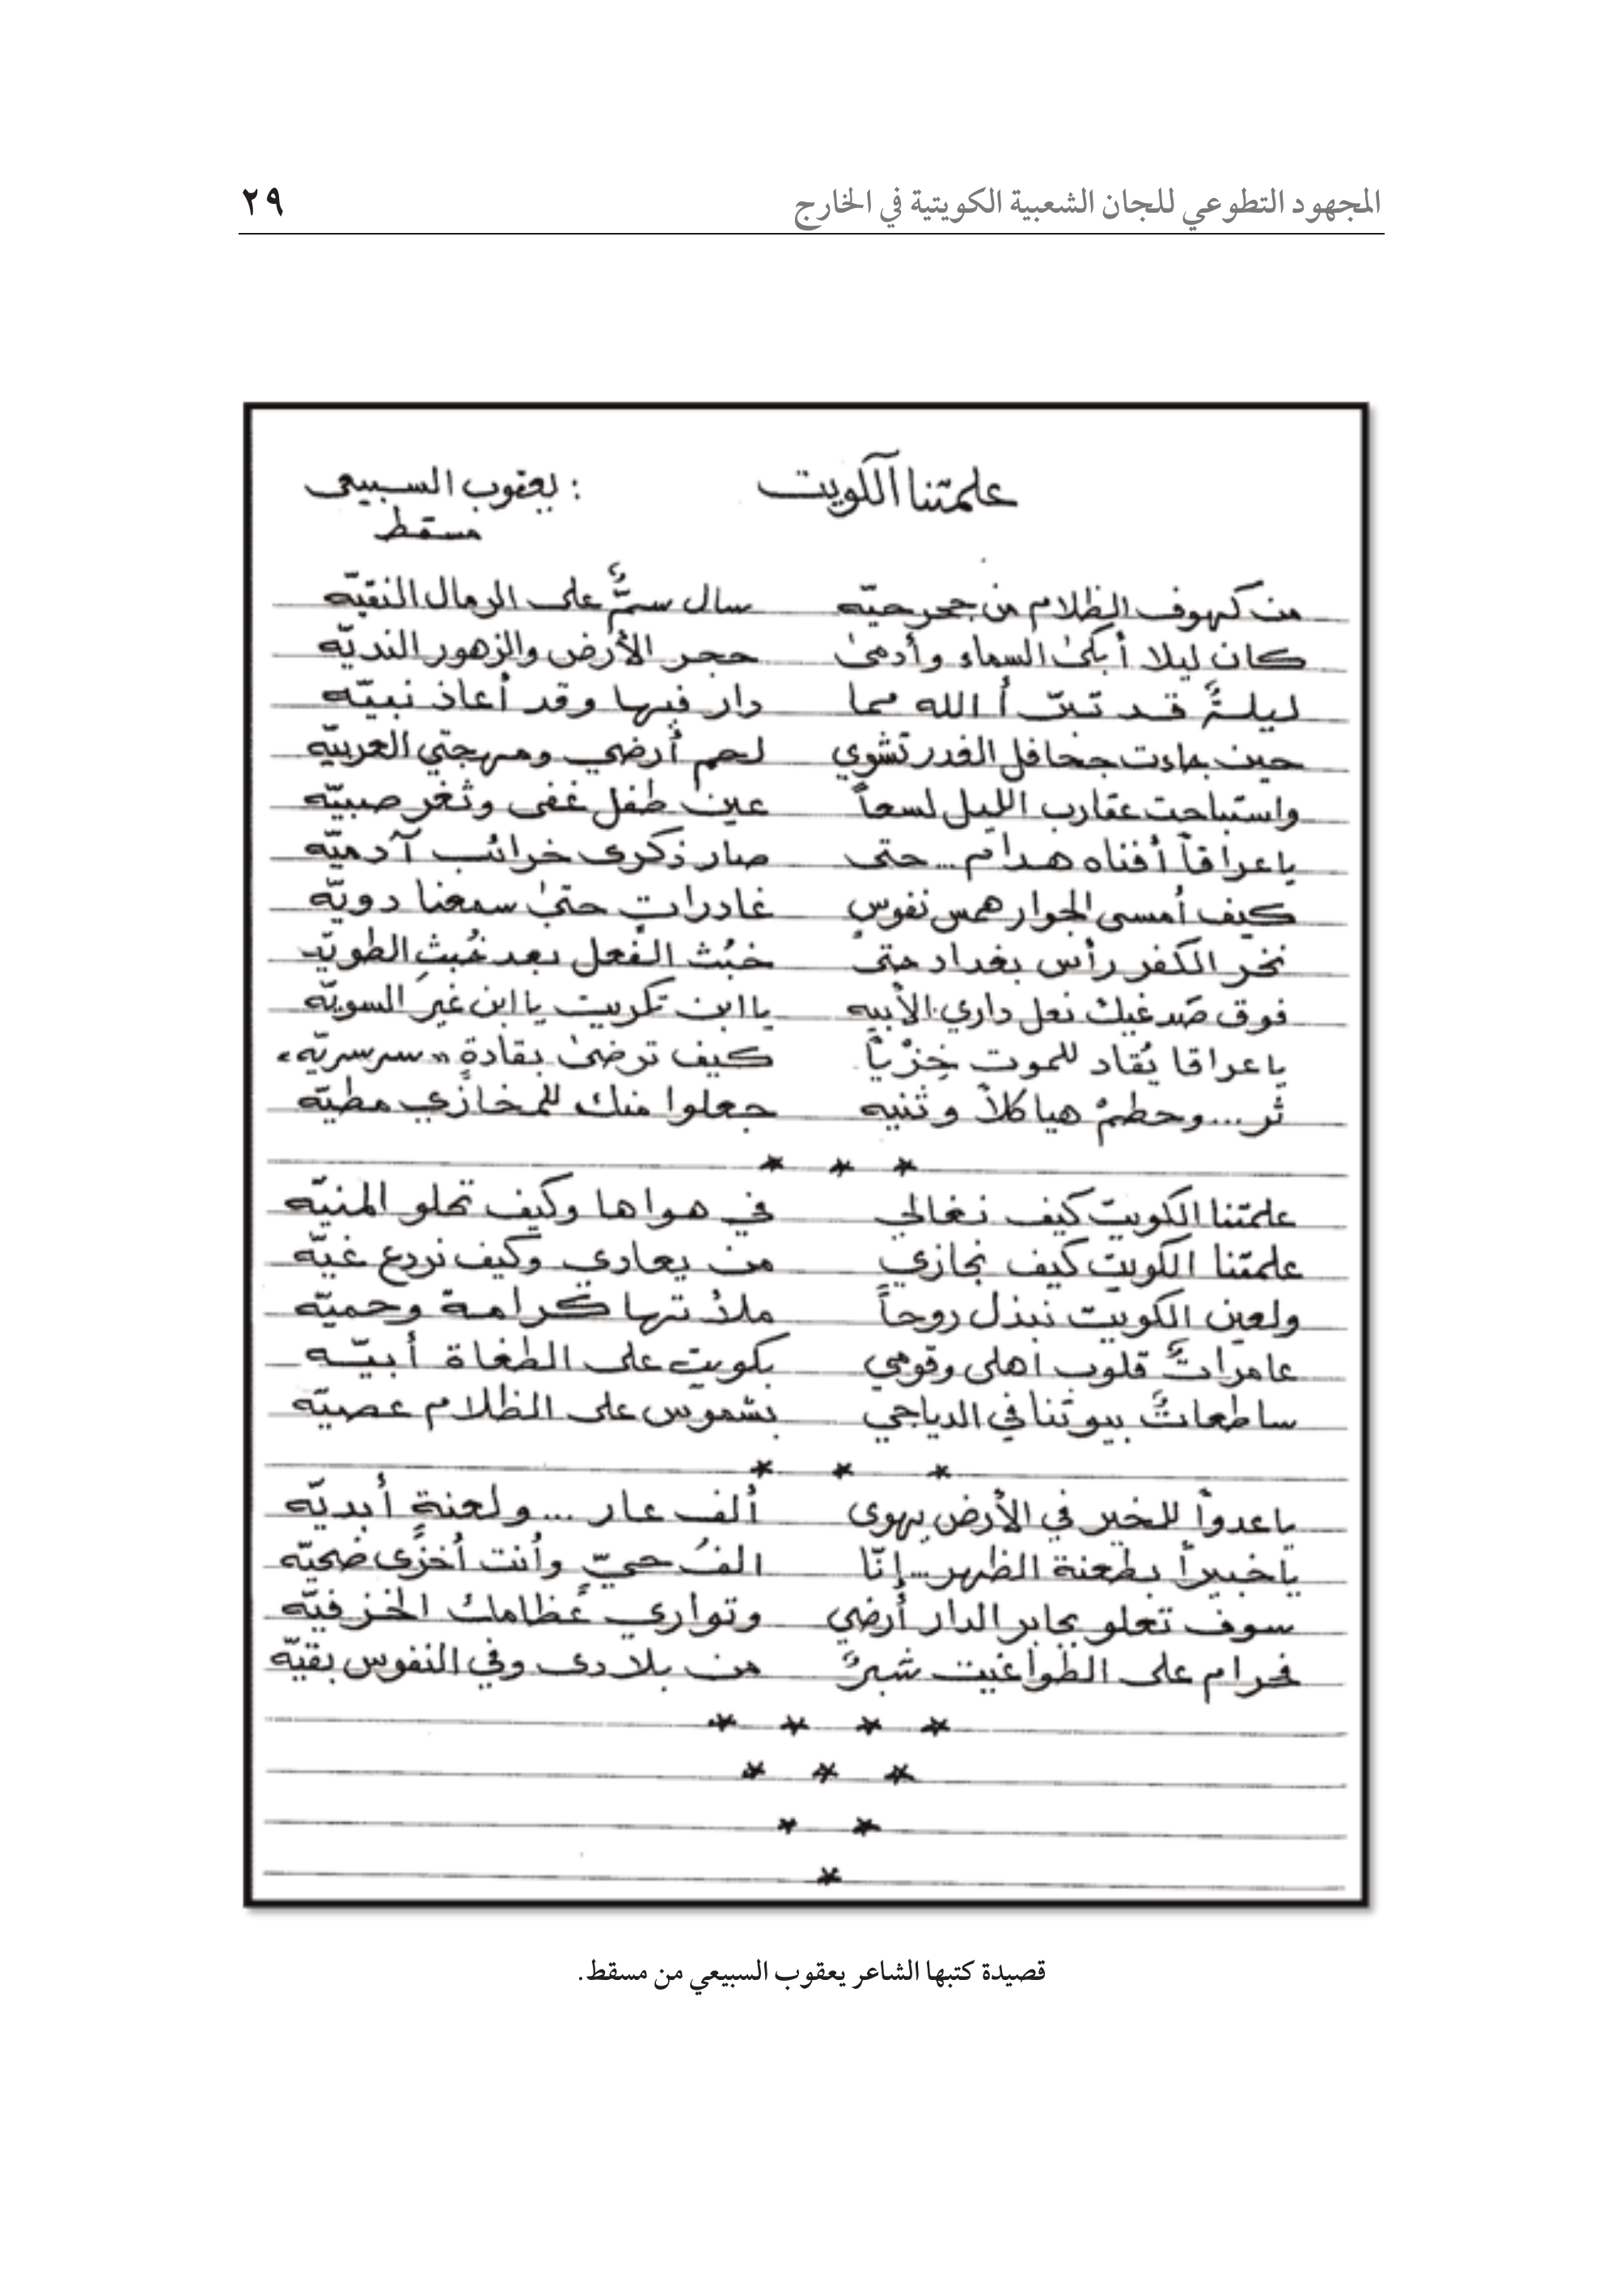 المجهود التطوعي للجان الشعبية الكويتية في الخارج ٢٩
علمتنا الكويت : يعقوب السبيعى
مسقط
من كهوف الظلام من جحر حيّه سال سمٌّ على الرمال النقيّه
كان ليلا أبكىٰ السماء وأدمىٰ حجر الأرض والزهور النديّه
ليلةٌ قد تبرّأ الله مما دار فيها وقد أعاذ نبيّه
حين جاءت جحافل الغدر تشوي لحم أرضي ومهجتي العربيّه
واستباحت عقارب الليل لسعاً عين طفل غفى وثغر صبيّه
ياعراقاً أفناه هدام... حتى صار ذكرى خرائب آدميّه
كيف أمسى الجوار همس نفوسٍ غادراتٍ حتىٰ سمعنا دويّه
نخر الكفر رأس بغداد حتىٰ خبُث الفعل بعد خُبثِ الطويّه
فوق صدغيك نعل داري الأبيه يا ابن تكريت يا ابن غيرَ السويّه
ياعراقا يُقاد للموت خِزْياً كيف ترضىٰ بقادةٍ "سرسريّه"
ثر... وحطمْ هياكلاً وثنيه جعلوا منك للمخازي مطيّه
* * *
علمتنا الكويت كيف نغالي في هواها وكيف تحلو المنيّه
علمتنا الكويت كيف نجازي من يعادي وكيف نردع غيّه
ولعين الكويت نبذل روحاً ملأتها كرامة وحميّه
عامراتٌ قلوب أهلى وقومي بكويتٍ على الطغاة أبيّه
ساطعاتٌ بيوتنا في الدياجي بشموسٍ على الظلام عصيّه
* * *
ياعدواً للخير في الأرض يهوى ألف عار ... ولعنةٍ أبديّه
ياخبيراً بطعنة الظهر... إنّا الفُ حيّ وأنت أخزى ضحيّه
سوف تعلو بجابر الدار أرضي وتواري عظامك الخزفيّه
فحرام على الطواغيت شبرٌ من بلادى وفي النفوس بقيّه
* * * *
* * *
* *
*
قصيدة كتبها الشاعر يعقوب السبيعي من مسقط.